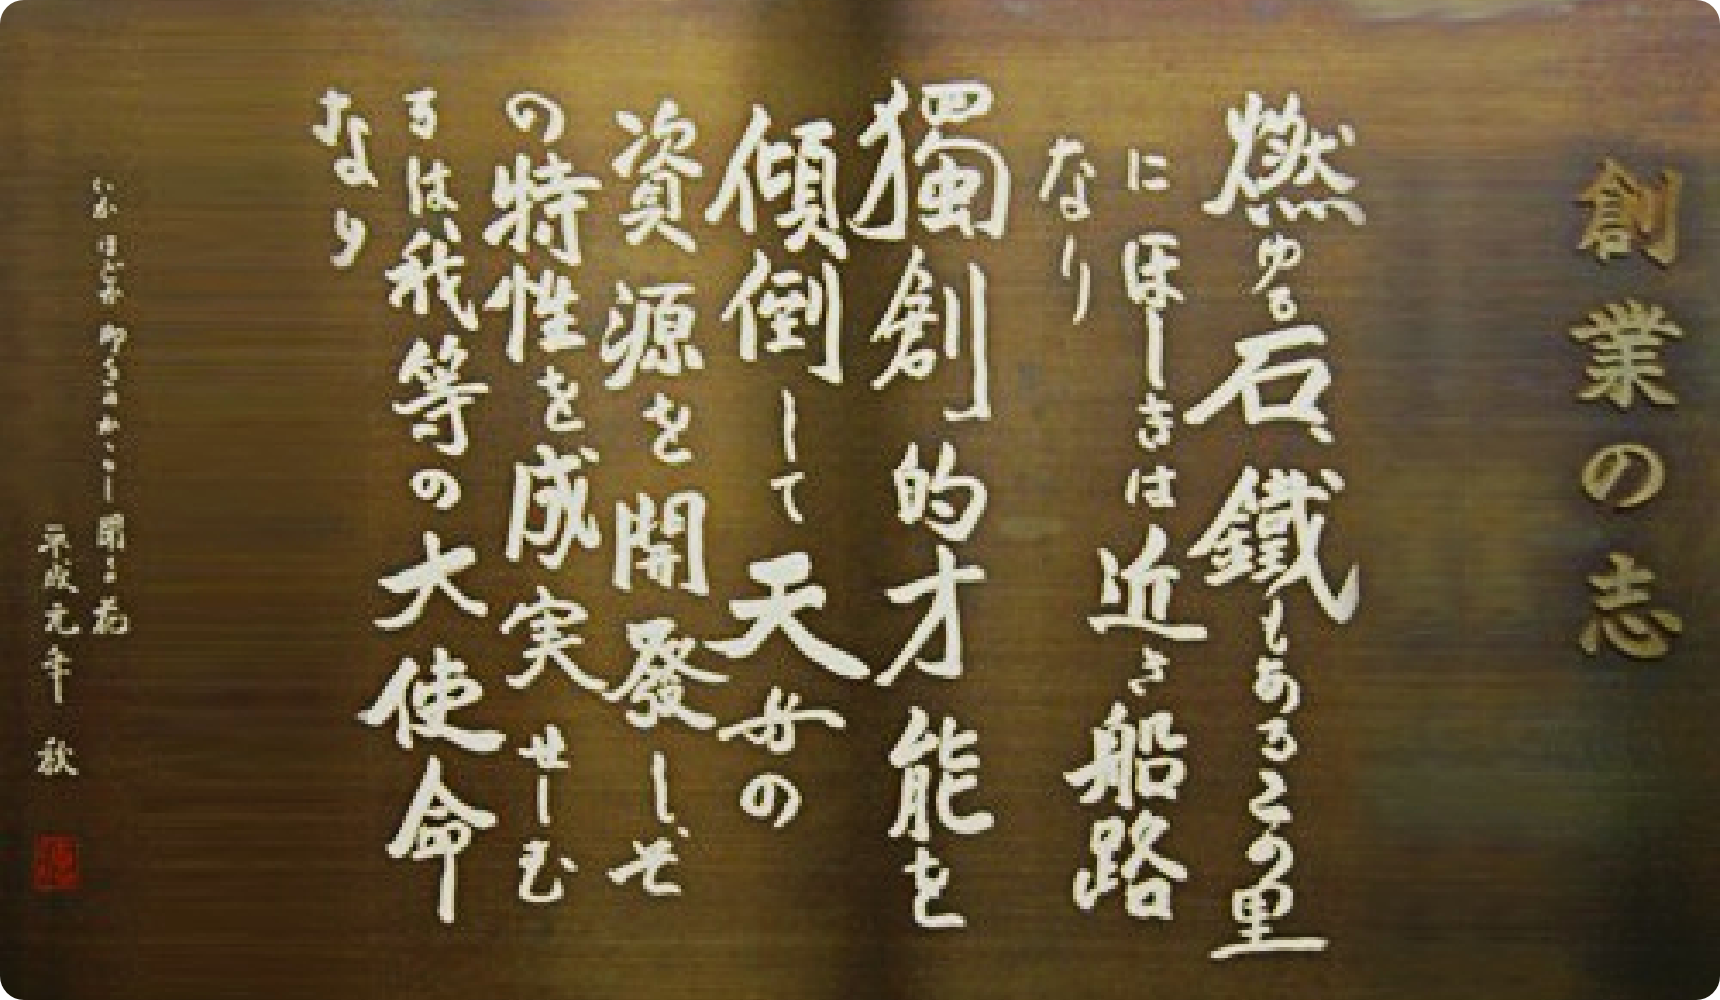 創業の志
燃ゆる石鐵もあるこの里
にほしきは近き船路
なり
獨創的才能を
傾倒して天与の
資源を開發し、そ
の特性を成実せしむ
るは、我等の大使命
なり
いかほどか
平成元年 秋